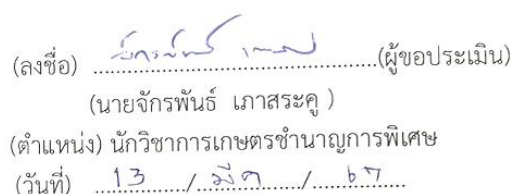 (ลงชื่อ) ..........................................(ผู้ขอประเมิน)
(นายจักรพันธ์ เภาสระคู )
(ตำแหน่ง) นักวิชาการเกษตรชำนาญการพิเศษ
(วันที่) ....13....../...มีค...../....67......